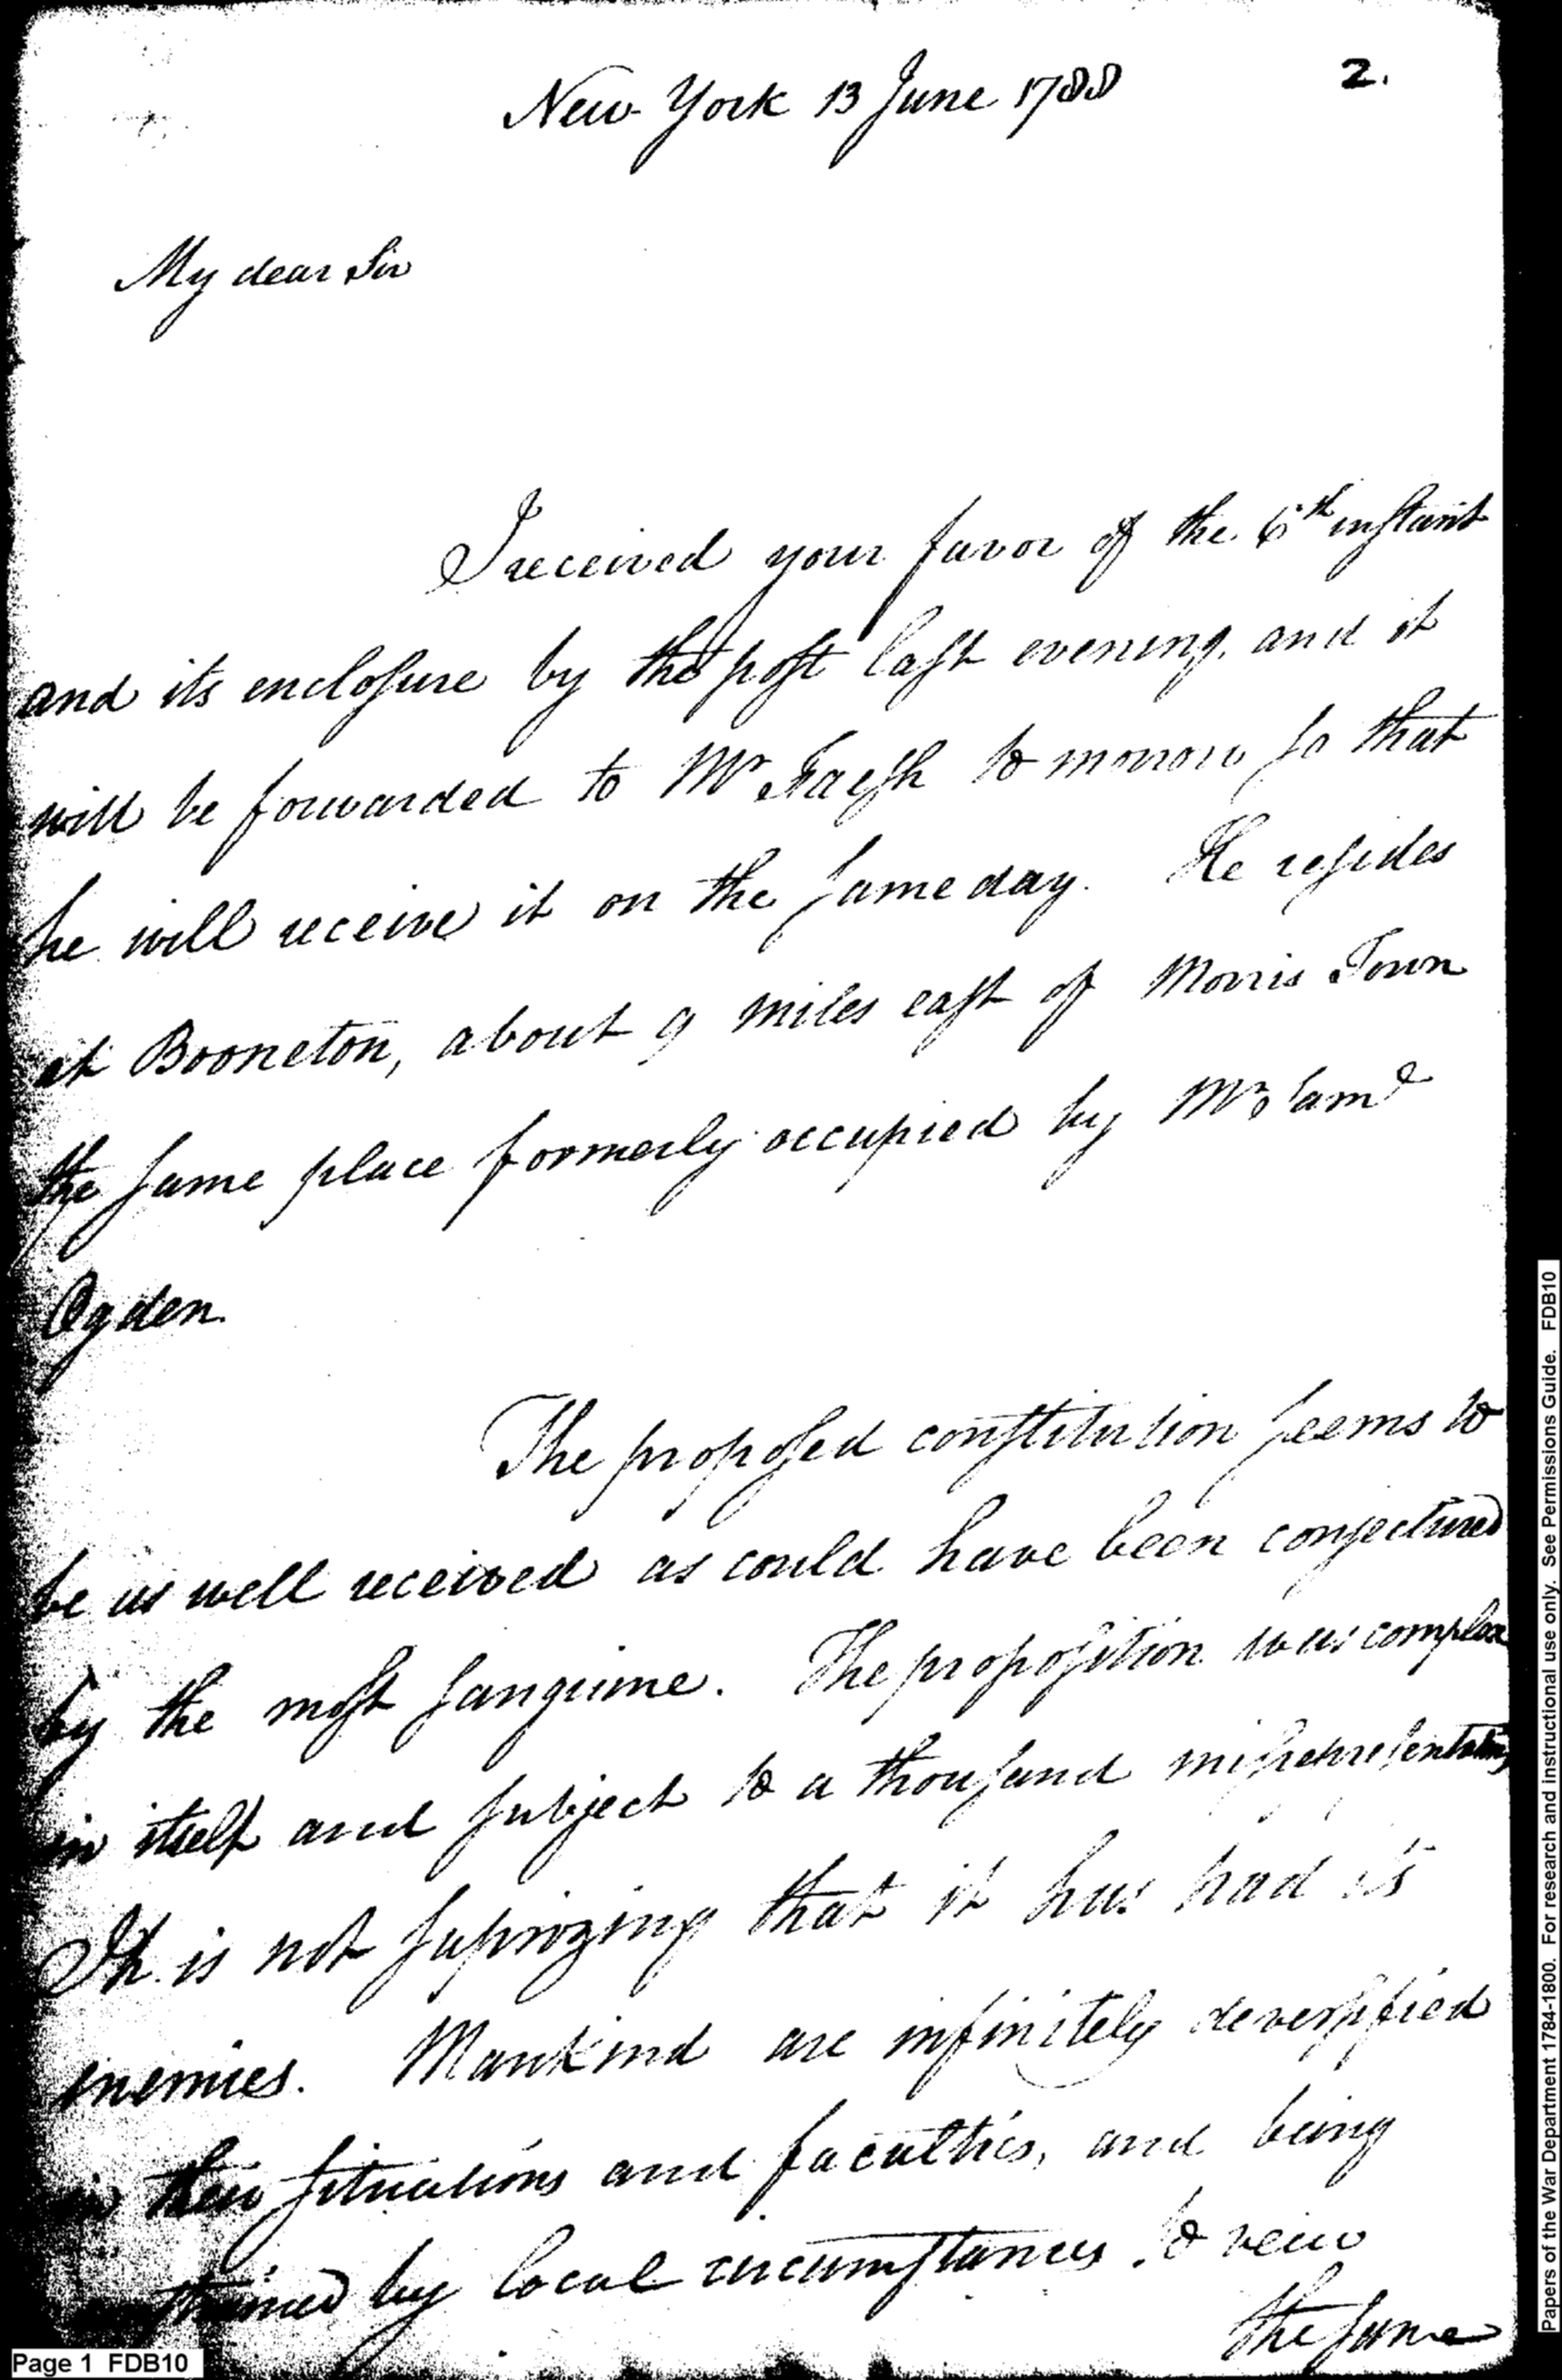 New York 13 June 1788
2.
My dear Sir
I received your favor of the 6th instant
and its enclosure by the post last evening, and it
will be forwarded to Mr Faesh to morrow so that
he will receive it on the same day. He resides
at Booneton, about 9 miles east of Morris Town
the same place formerly occupied by Mr Saml
Ogden.
The proposed constitution seems to
be as well received as could have been conjectured
by the most sanguine. The proposition was complex
in itself and subject to a thousand misrepresentations
It is not suprizing that it has had its
enemies. Mankind are infinitely deversified
in their situations and faculties, and being
by local circumstances to veiw
the same
Page 1 FDB10
Papers of the War Department 1784-1800. For research and instructional use only. See Permissions Guide. FDB10